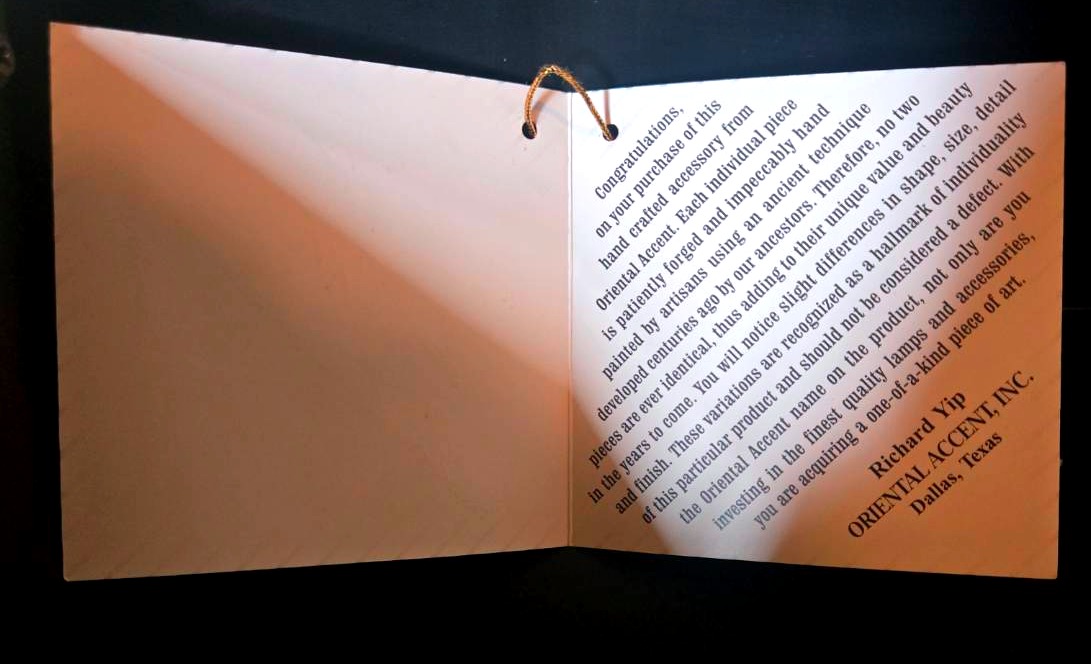 Congratulations,
on your purchase of this
hand crafted accessory from
Oriental Accent. Each individual piece
is patiently forged and impeccably hand
painted by artisans using an ancient technique
developed centuries ago by our ancestors. Therefore, no two
pieces are ever identical, thus adding to their unique value and beauty
in the years to come. You will notice slight differences in shape, size, detail
and finish. These variations are recognized as a hallmark of individuality
of this particular product and should not be considered a defect. With
the Oriental Accent name on the product, not only are you
investing in the finest quality lamps and accessories,
you are acquiring a one-of-a-kind piece of art.
Richard Yip
ORIENTAL ACCENT, INC.
Dallas, Texas